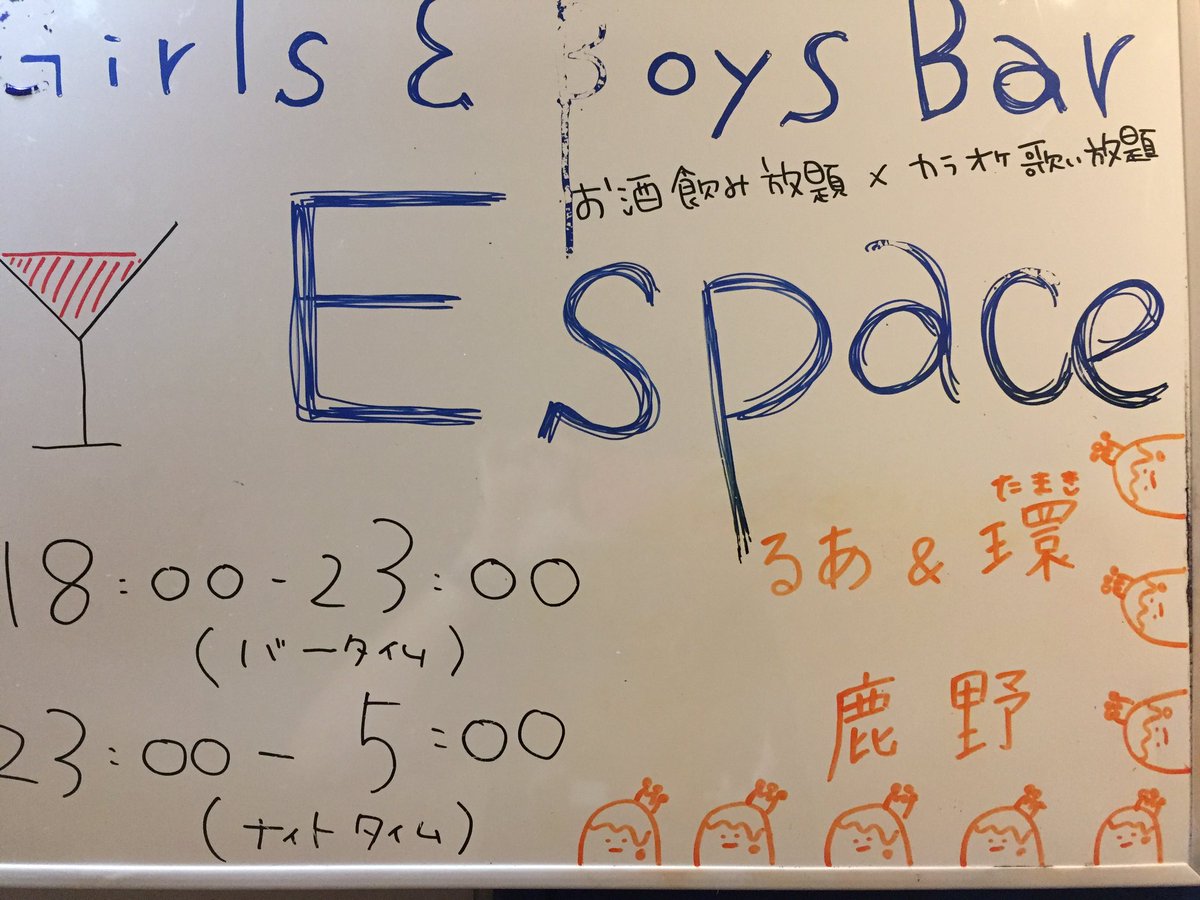 Girls & Boys Bar
お酒飲み放題×カラオケ歌い放題
Espace
18:00-23:00
(バータイム)
23:00-5:00
(ナイトタイム)
たまき
るあ&環
鹿野